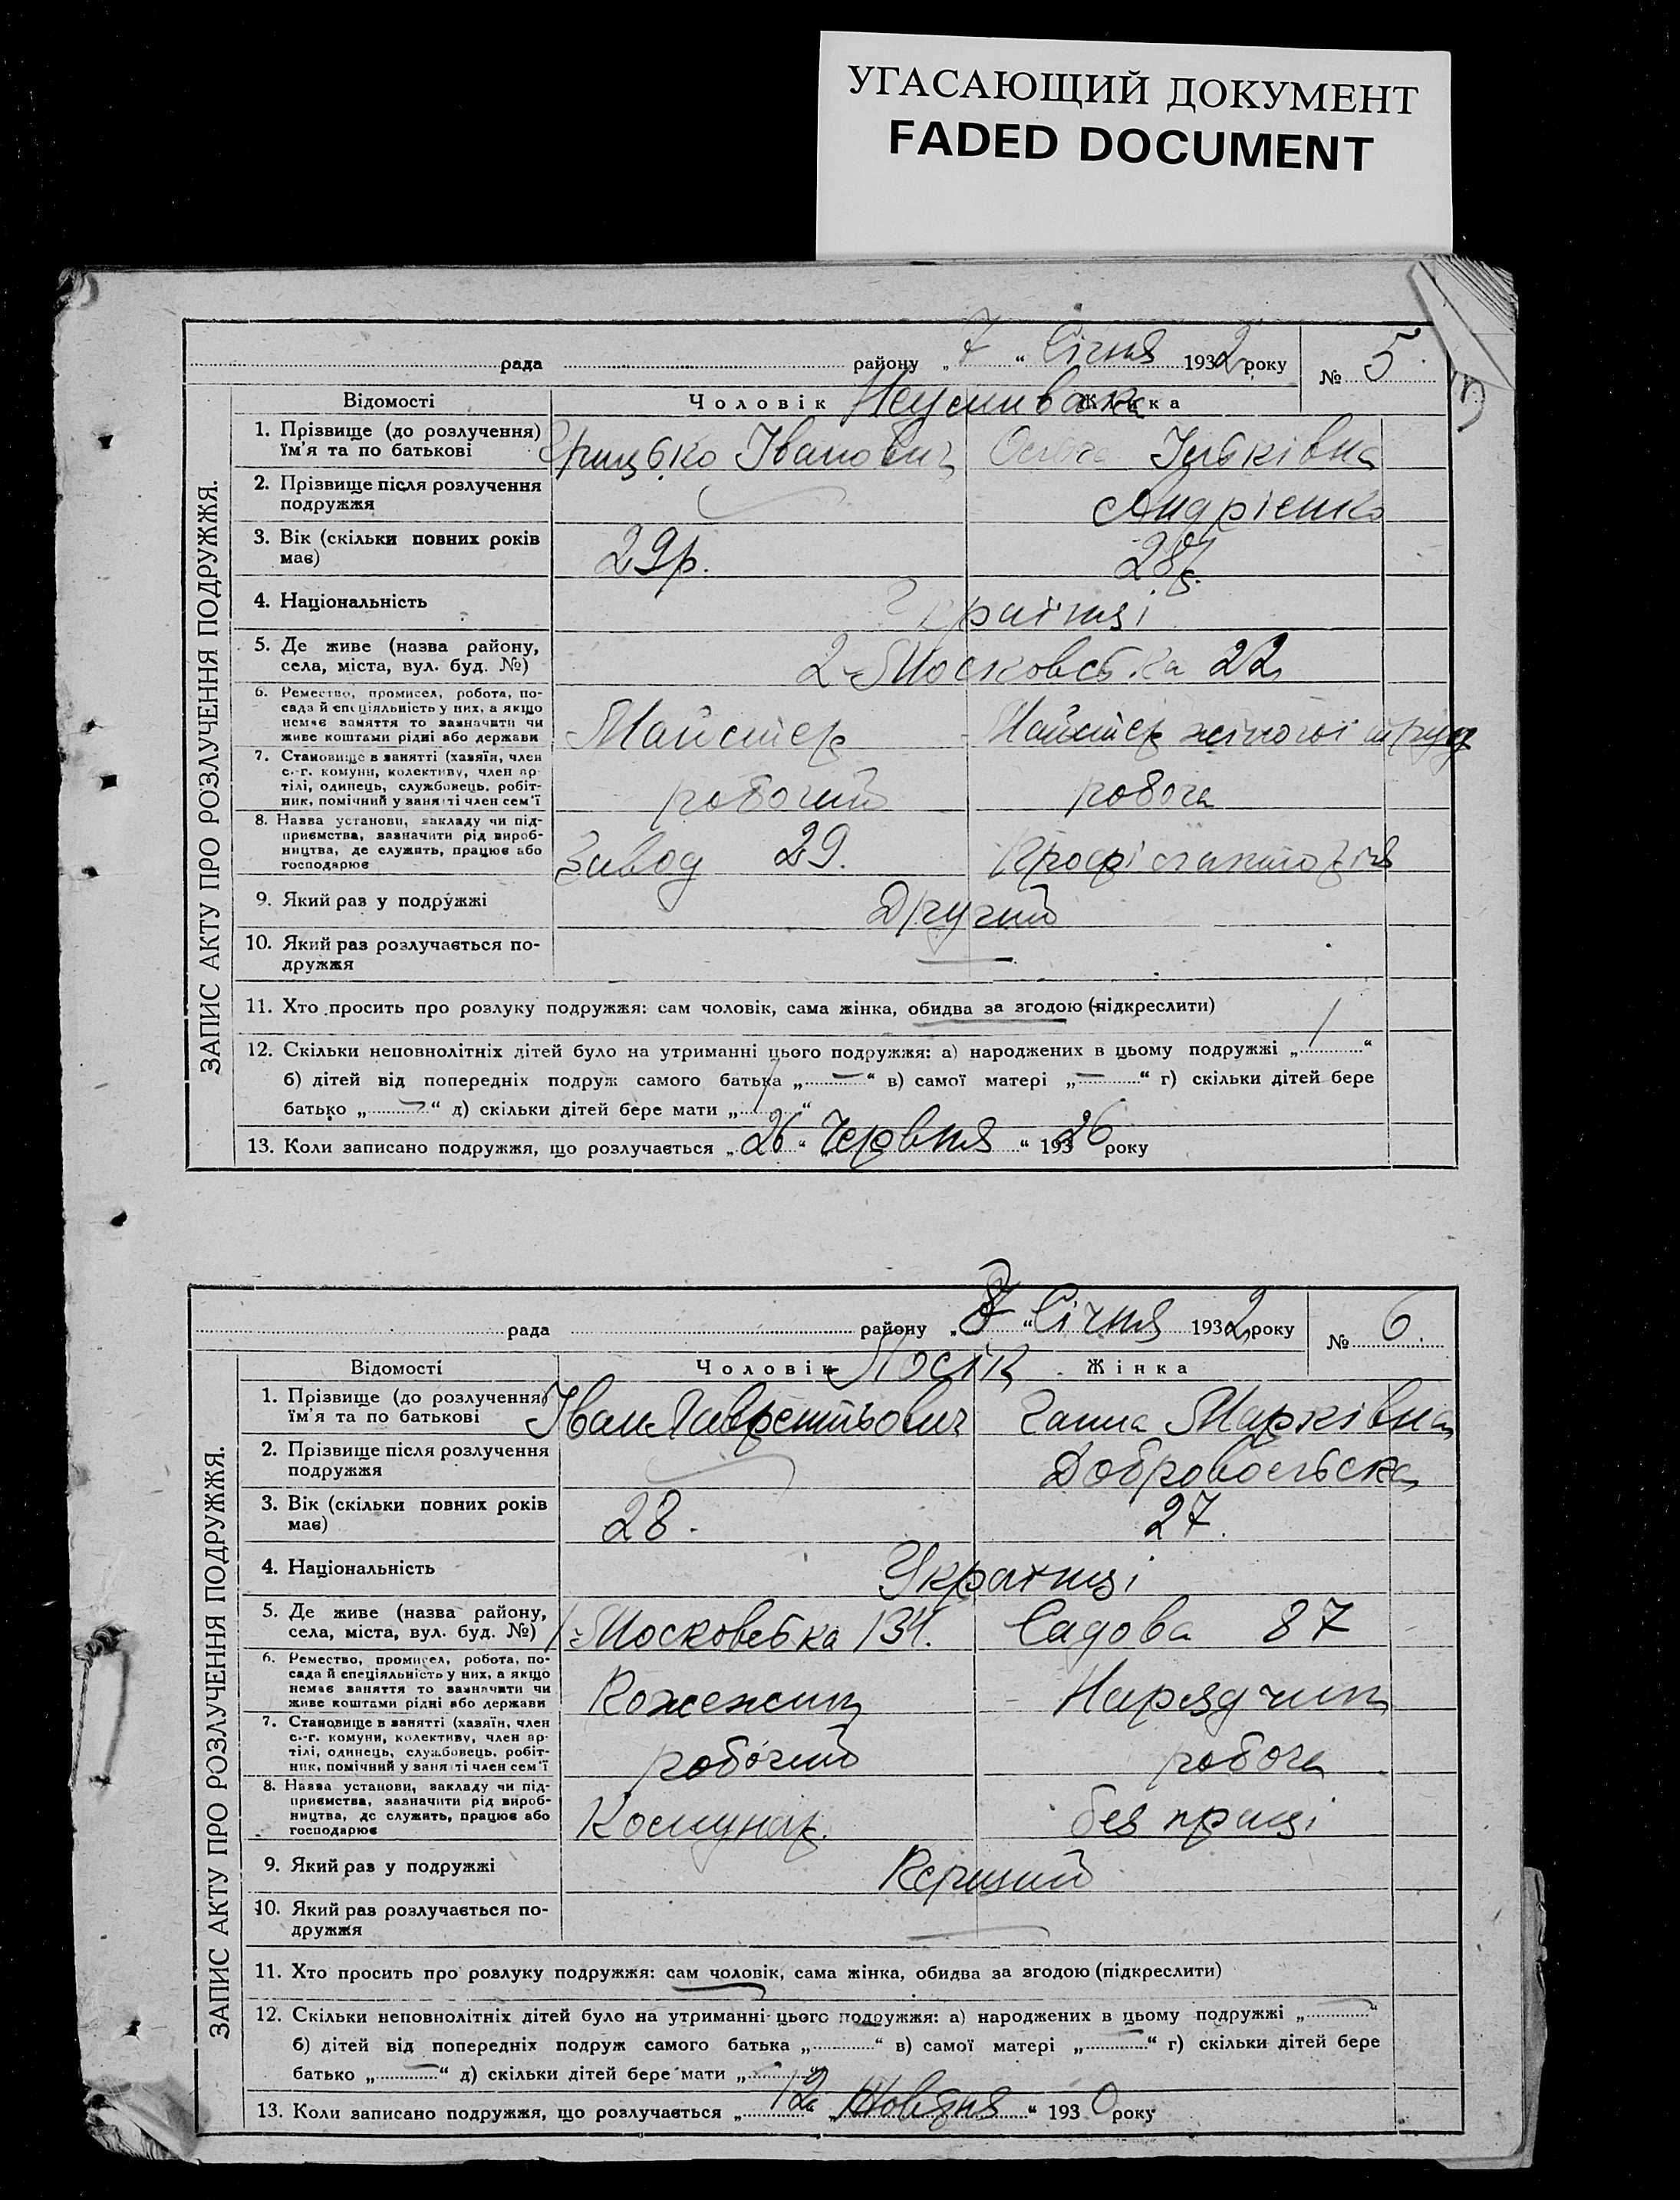 УГАСАЮЩИЙ ДОКУМЕНТ
FADED DOCUMENT
рада району „ 7 “ Січня 1932 року № 5
ЗАПИС АКТУ ПРО РОЗЛУЧЕННЯ ПОДРУЖЖЯ.
Відомості Чоловік Жінка
1. Прізвище (до розлучення)
їм'я та по батькові Грицько Іванович
2. Прізвище після розлучення
подружжя Андрієнко
3. Вік (скільки повних років
має) 29р. 28р.
4. Національність Українці
5. Де живе (назва району,
села, міста, вул. буд. №) 2-Московська 22
6. Ремество, промисел, робота, по-
сада й спеціяльність у них, а якщо
немає заняття то зазначити чи
живе коштами рідні або держави Майстер Майстер
7. Становище в занятті (хазяїн, член
с.-г. комуни, колективу, член ар-
тілі, одинець, службовець, робіт-
ник, помічний у занятті член сем'ї робочий робоча
8. Назва установи, закладу чи під-
приємства, зазначити рід вироб-
ництва, де служить, працює або
господарює Завод 29.
9. Який раз у подружжі Другий
10. Який раз розлучається по-
дружжя —
11. Хто просить про розлуку подружжя: сам чоловік, сама жінка, обидва за згодою (підкреслити)
12. Скільки неповнолітніх дітей було на утриманні цього подружжя: а) народжених в цьому подружжі „ 1 “
б) дітей від попередніх подруж самого батька „ — “ в) самої матері „ — “ г) скільки дітей бере
батько „ — “ д) скільки дітей бере мати „ 1 “
13. Коли записано подружжя, що розлучається „ 26 “ Червня “ 193 26 року
рада району „ 8 “ Січня 1932 року № 6.
ЗАПИС АКТУ ПРО РОЗЛУЧЕННЯ ПОДРУЖЖЯ.
Відомості Чоловік Носік Жінка
1. Прізвище (до розлучення)
їм'я та по батькові Іван Лаврентьович Ганна Марківна
2. Прізвище після розлучення
подружжя Добровольська
3. Вік (скільки повних років
має) 28. 27.
4. Національність Українці
5. Де живе (назва району,
села, міста, вул. буд. №) 1-Московська 134. Садова 87
6. Ремество, промисел, робота, по-
сада й спеціяльність у них, а якщо
немає заняття то зазначити чи
живе коштами рідні або держави Нарядчиц
7. Становище в занятті (хазяїн, член
с.-г. комуни, колективу, член ар-
тілі, одинець, службовець, робіт-
ник, помічний у занятті член сем'ї робочий робоча
8. Назва установи, закладу чи під-
приємства, зазначити рід вироб-
ництва, де служить, працює або
господарює Комунар. без праці
9. Який раз у подружжі Перший
10. Який раз розлучається по-
дружжя —
11. Хто просить про розлуку подружжя: сам чоловік, сама жінка, обидва за згодою (підкреслити)
12. Скільки неповнолітніх дітей було на утриманні цього подружжя: а) народжених в цьому подружжі „ — “
б) дітей від попередніх подруж самого батька „ “ в) самої матері „ — “ г) скільки дітей бере
батько „ — “ д) скільки дітей бере мати „ “
13. Коли записано подружжя, що розлучається „ 12 “ Жовтня “ 1930 року